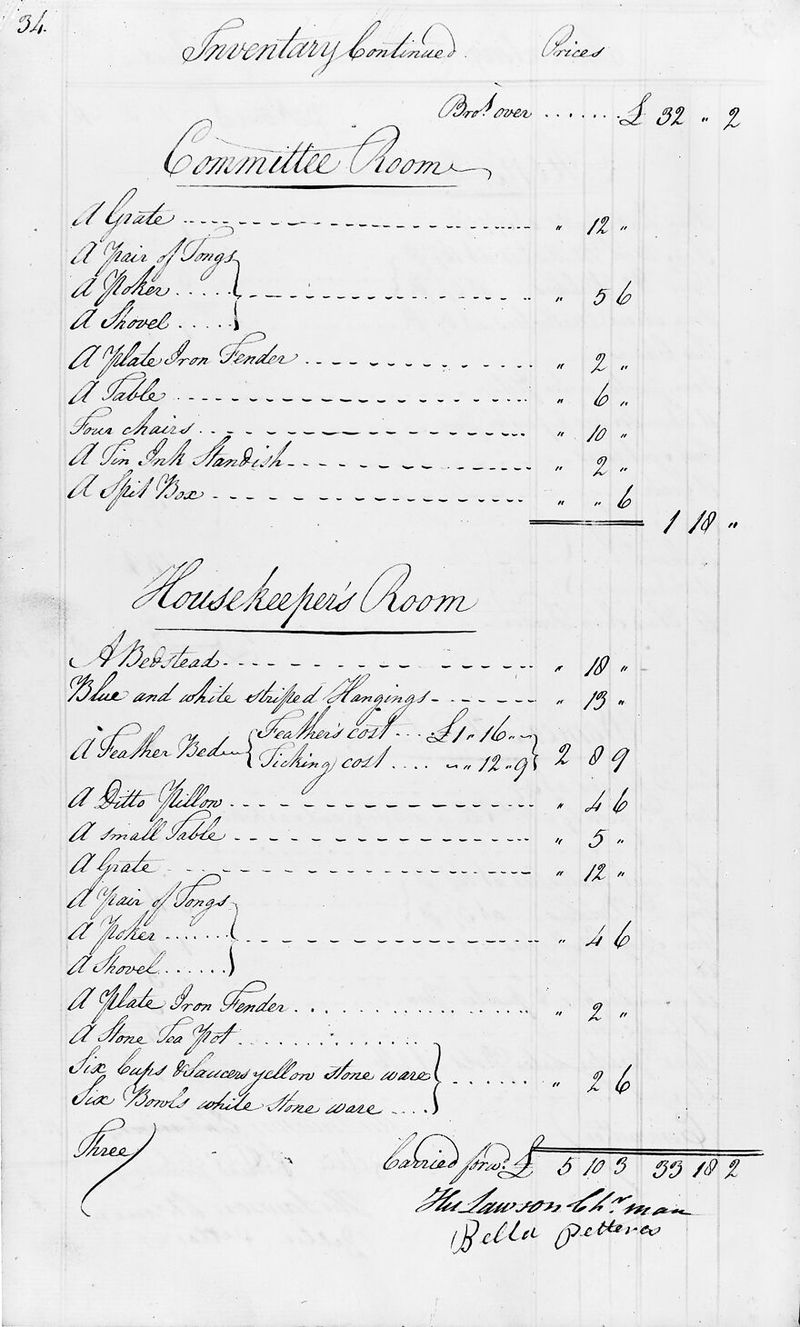 34.
Inventary Continued. Prices
Brot. over ....... £ 32 " 2
Committee Room
A Grate " 12 "
A Pair of Tongs
A Poker ..... " 5 6
A Shovel .....
A Plate Iron Fender " 2 "
A Table " 6 "
Four chairs " 10 "
A Tin Ink Standish " 2 "
A Spit Box " " 6
1 18 "
Housekeeper's Room
A Bedstead " 18 "
Blue and white striped Hangings " 13 "
Feather's cost ... £1 " 16 "
A Feather Bed 2 8 9
Ticking cost .... " " 12 " 9
A Ditto Pillow " 4 6
A small Table " 5 "
A Grate " 12 "
A Pair of Tongs
A Poker ....... " 4 6
A Shovel .......
A Plate Iron Fender " 2 "
A Stone Tea Pot
Six Cups & Saucers yellow stone ware " 2 6
Six Bowls white stone ware ....
Three
Carried forwd. £ 5 10 3 33 18 2
Hu Lawson Chr.man
Bella Petteres